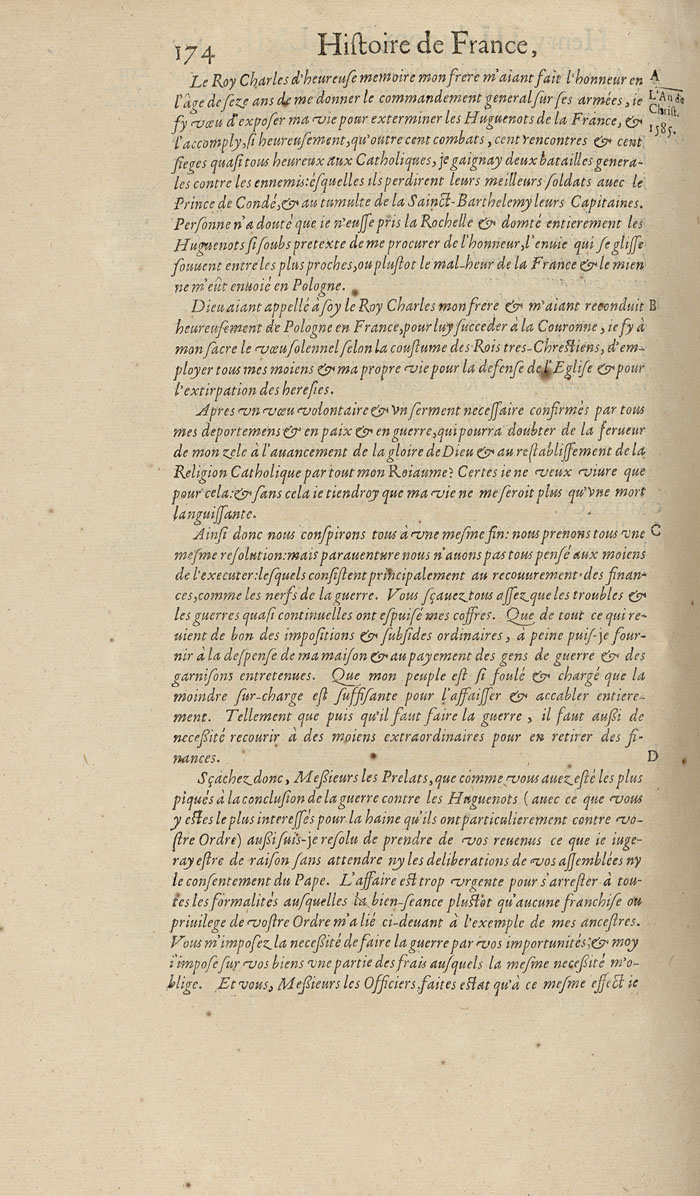 174 Histoire de France,
Le Roy Charles d'heureuse memoire mon frere m'aiant fait l'honneur en A
l'âge de seze ans de me donner le commandement general sur ses armées, ie L'An de
fy vœu d'exposer ma vie pour exterminer les Huguenots de la France, & Christ.
l'accomply, si heureusement, qu'outre cent combats, cent rencontres & cent 1585.
sieges quasi tous heureux aux Catholiques, je gaignay deux batailles genera-
les contre les ennemis: ésquelles ils perdirent leurs meilleurs soldats avec le
Prince de Condé, & au tumulte de la Sainct-Barthelemy leurs Capitaines.
Personne n'a douté que ie n'eusse pris la Rochelle & domté entierement les
Huguenots si soubs pretexte de me procurer de l'honneur, l'enuie qui se glisse
souuent entre les plus proches, ou plustot le mal-heur de la France & le mien
ne m'eût enuoié en Pologne.
Dieu aiant appellé à soy le Roy Charles mon frere & m'aiant reconduit B
heureusement de Pologne en France, pour luy succeder à la Couronne, ie fy à
mon sacre le vœu solennel selon la coustume des Rois tres-Chrestiens, d'em-
ployer tous mes moiens & ma propre vie pour la defense de l'Eglise & pour
l'extirpation des heresies.
Apres vn vœu volontaire & vn serment necessaire confirmés par tous
mes deportemens & en paix & en guerre, qui pourra doubter de la ferueur
de mon zele à l'auancement de la gloire de Dieu & au restablissement de la
Religion Catholique par tout mon Roiaume? Certes ie ne veux viure que
pour cela: & sans cela ie tiendroy que ma vie ne me seroit plus qu'vne mort
languissante.
Ainsi donc nous conspirons tous à vne mesme fin: nous prenons tous vne C
mesme resolution: mais parauenture nous n'auons pas tous pensé aux moiens
de l'executer: lesquels consistent principalement au recouurement des finan-
ces, comme les nerfs de la guerre. Vous sçauez tous assez que les troubles &
les guerres quasi continuelles ont espuisé mes coffres. Que de tout ce qui re-
uient de bon des impositions & subsides ordinaires, à peine puis-je four-
nir à la despense de ma maison & au payement des gens de guerre & des
garnisons entretenues. Que mon peuple est si foulé & chargé que la
moindre sur-charge est suffisante pour l'affaisser & accabler entiere-
ment. Tellement que puis qu'il faut faire la guerre, il faut aussi de
necessité recourir à des moiens extraordinaires pour en retirer des fi-
nances. D
Sçachez donc, Messieurs les Prelats, que comme vous auez esté les plus
piqués à la conclusion de la guerre contre les Huguenots (auec ce que vous
y estes le plus interessés pour la haine qu'ils ont particulierement contre vo-
stre Ordre) aussi suis-je resolu de prendre de vos reuenus ce que ie iuge-
ray estre de raison sans attendre ny les deliberations de vos assemblées ny
le consentement du Pape. L'affaire est trop urgente pour s'arrester à tou-
tes les formalités ausquelles la bien-seance plustot qu'aucune franchise ou
priuilege de vostre Ordre m'a lié ci-deuant à l'exemple de mes ancestres.
Vous m'imposez la necessité de faire la guerre par vos importunités: & moy
i'impose sur vos biens vne partie des frais ausquels la mesme necessité m'o-
blige. Et vous, Messieurs les Officiers, faites estat qu'à ce mesme effect ie